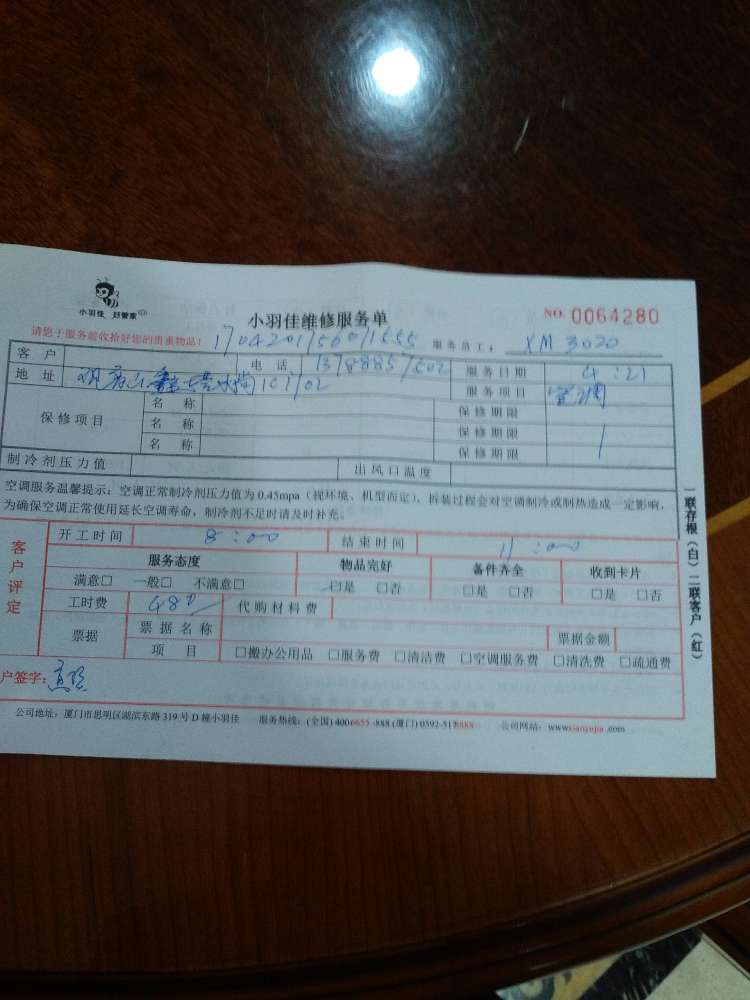 小羽佳 好管家
小羽佳维修服务单
NO. 0064280
请您于服务前收拾好您的贵重物品!
服务员工: XM 3020
客户 电话 服务日期 4:21
地址 服务项目 空调
保修项目 名称 保修期限
名称 保修期限
名称 保修期限
制冷剂压力值 出风口温度
空调服务温馨提示:空调正常制冷剂压力值为 0.45mpa(视环境、机型而定),拆装过程会对空调制冷或制热造成一定影响,
为确保空调正常使用延长空调寿命,制冷剂不足时请及时补充。
客户评定
开工时间 8:00 结束时间 11:00
服务态度 物品完好 备件齐全 收到卡片
满意□ 一般□ 不满意□ □是 □否 □是 □否 □是 □否
工时费 480 代购材料费
票据 票据名称 票据金额
项目 □搬办公用品 □服务费 □清洁费 □空调服务费 □清洗费 □疏通费
户签字:
公司地址:厦门市思明区湖滨东路 319 号 D 幢小羽佳 服务热线:(全国) 4006655-888 (厦门) 0592-5178888 公司网站:www.xiaoyujia.com
一联存根(白)二联客户(红)